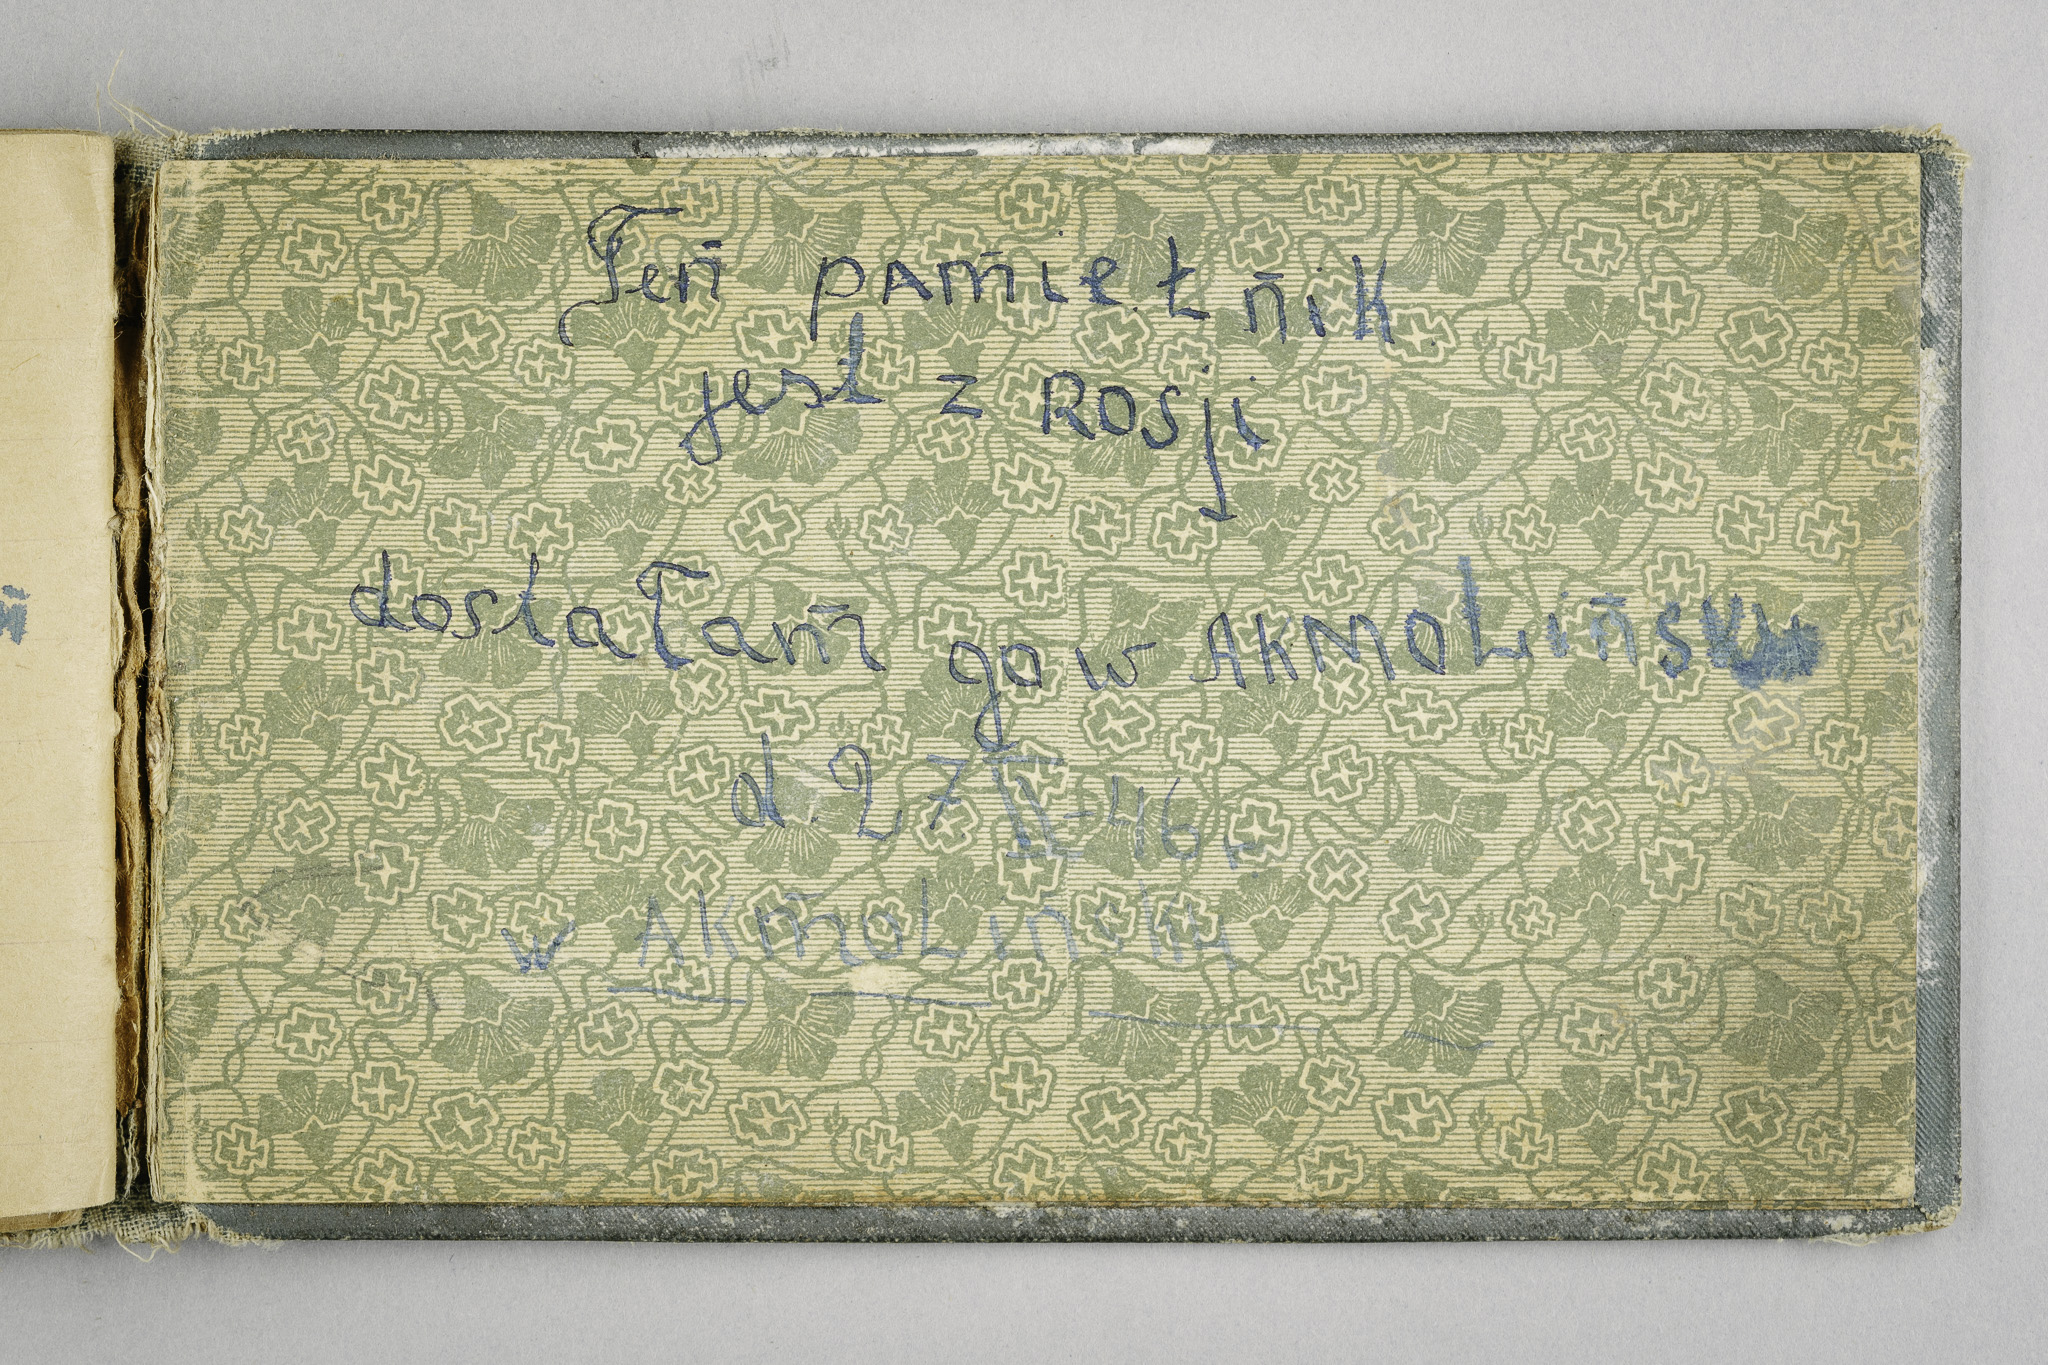 Ten pamiętnik
jest z Rosji
dostałam go w AKMOLińSKu
d. 27 II-46 r.
w AKmOLińsku